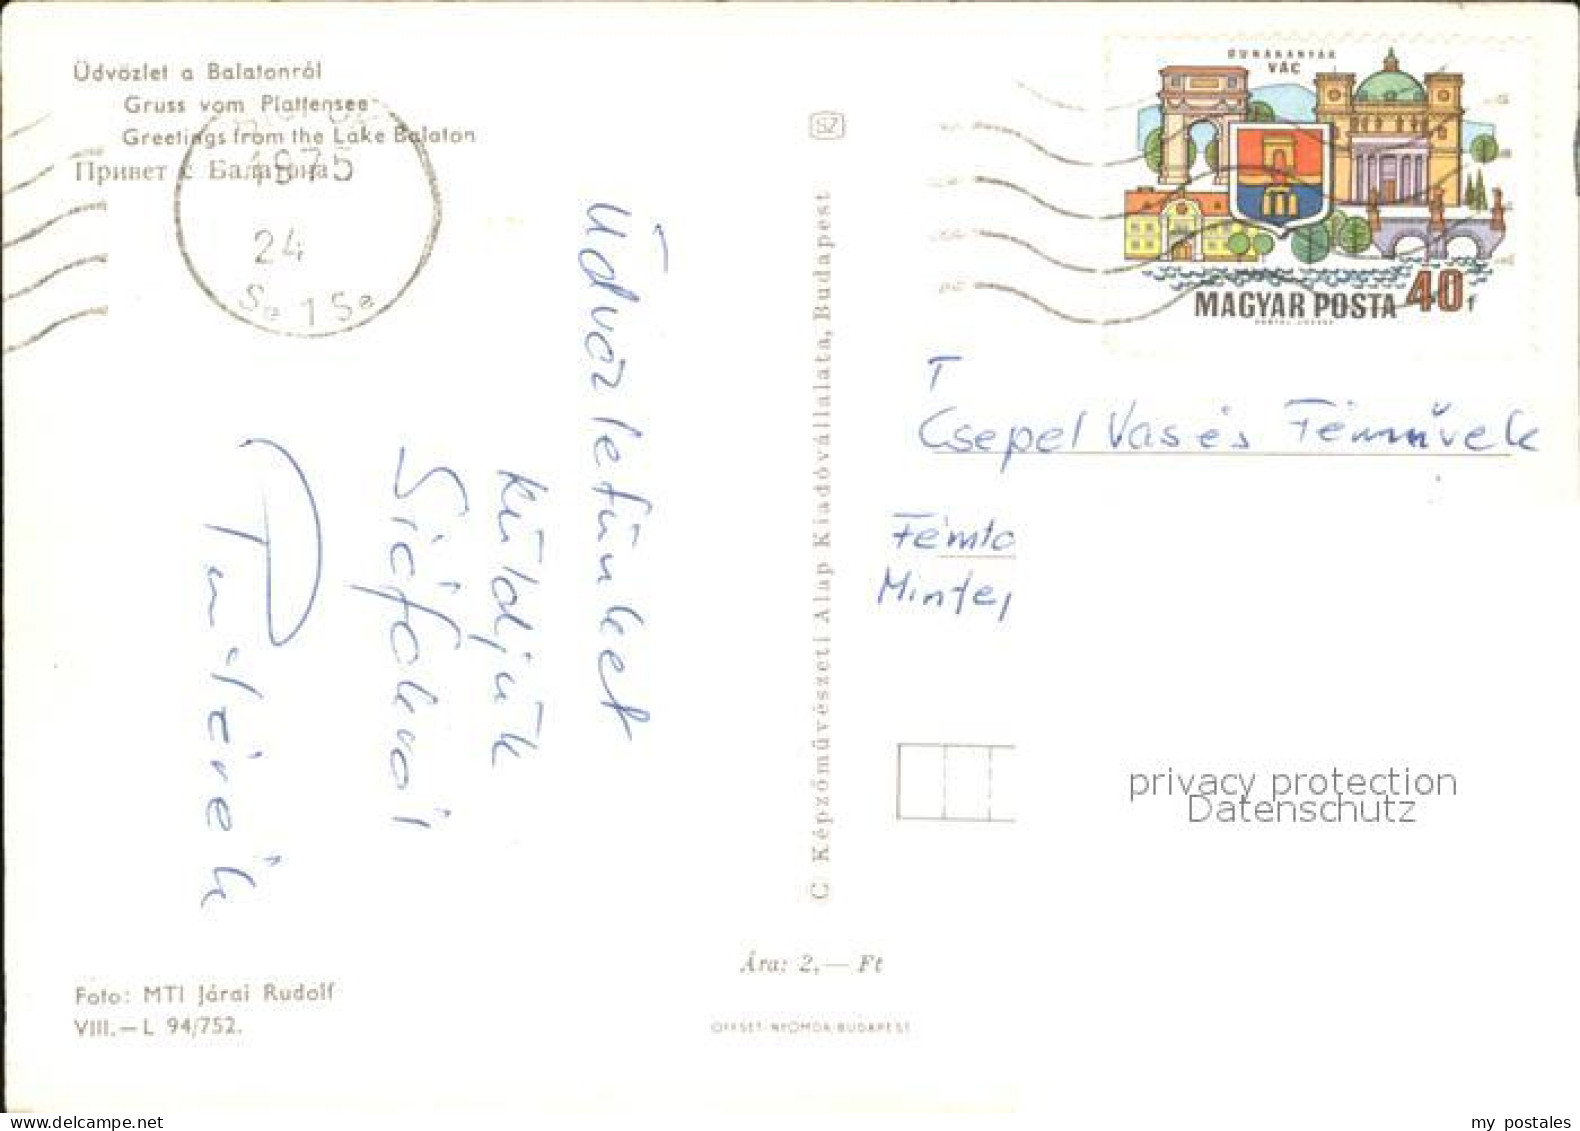 Üdvözlet a Balatonról
Gruss vom Plattensee
Greetings from the Lake Balaton
Привет с Балатона
1975
24
SZ
DUNAKANYAR
VÁC
MAGYAR POSTA 40f
Üdvözletünket
küldjük
Siófokról
T
Csepel Vas és Fémművek
Fémtc
C Képzőművészeti Alap Kiadóvállalata, Budapest
privacy protection
Datenschutz
Ára: 2,— Ft
Foto: MTI Járai Rudolf
VIII.—L 94/752.
OFFSET-NYOMDA BUDAPEST
www.delcampe.net
my postales